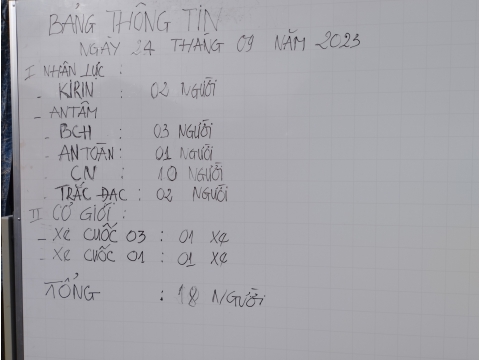 BẢNG THÔNG TIN
NGÀY 24 THÁNG 09 NĂM 2023
I NHÂN LỰC :
- KIRIN : 02 NGƯỜI
- ANTÂM
BCH : 03 NGƯỜI
- ANTOÀN : 01 NGƯỜI
CN : 10 NGƯỜI
- TRẮC ĐẠC : 02 NGƯỜI
II CƠ GIỚI :
- XE CUỐC 03 : 01 XE
- XE CUỐC 01 : 01 XE
TỔNG : 18 NGƯỜI